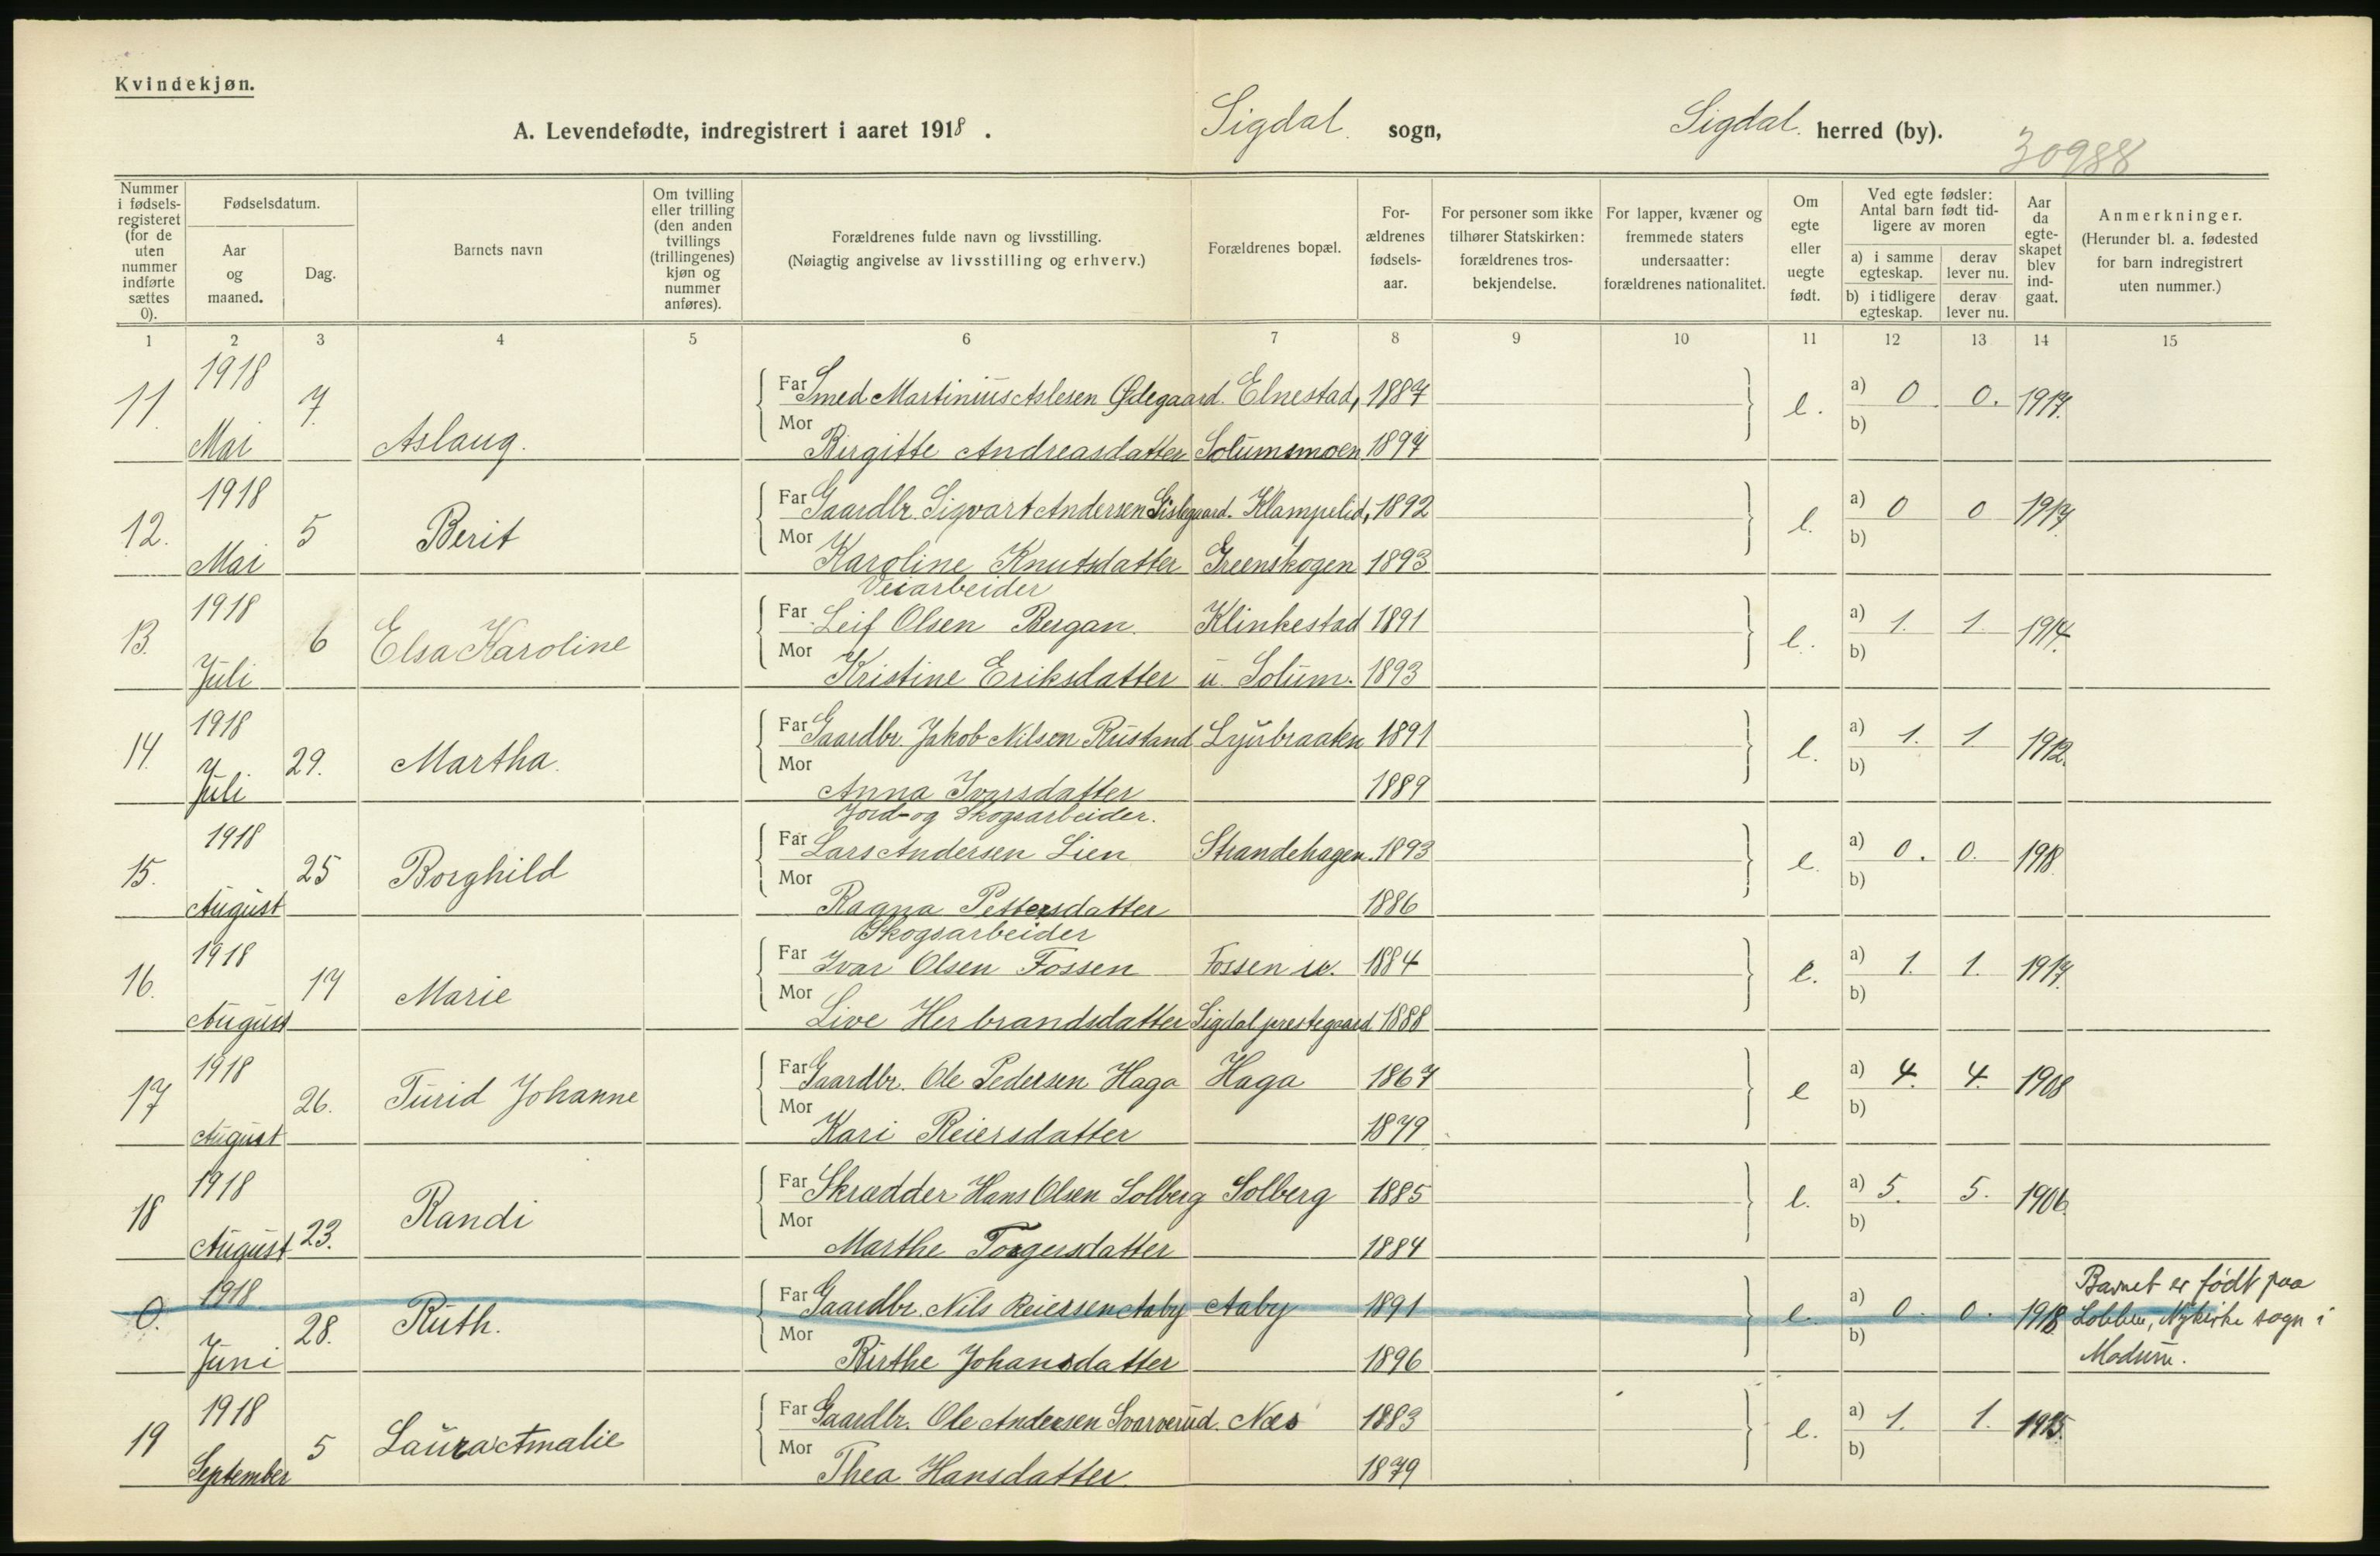 Kvindekjøn.
A. Levendefødte, indregistrert i aaret 1918. Sigdal sogn, Sigdal herred (by).
30988
Nummer i fødsels-registeret (for de uten nummer indførte sættes 0).
Fødselsdatum.
Aar og maaned.
Dag.
Barnets navn
Om tvilling eller trilling (den anden tvillings (trillingenes) kjøn og nummer anføres).
Forældrenes fulde navn og livsstilling.
(Nøiagtig angivelse av livsstilling og erhverv.)
Forældrenes bopæl.
For-ældrenes fødsels-aar.
For personer som ikke tilhører Statskirken: forældrenes tros-bekjendelse.
For lapper, kvæner og fremmede staters undersaatter: forældrenes nationalitet.
Om egte eller uegte født.
Ved egte fødsler: Antal barn født tid-ligere av moren
a) i samme egteskap.
derav lever nu.
b) i tidligere egteskap.
derav lever nu.
Aar da egte-skapet blev ind-gaat.
Anmerkninger.
(Herunder bl. a. fødested for barn indregistrert uten nummer.)
1 2 3 4 5 6 7 8 9 10 11 12 13 14 15
1918
11. 7. Far Smed Martinius Aslesen Ødegaard. Elnestad, 1887 e. a) 0 0. 1917.
Mor b)
Mai Aslaug. Birgitte Andreasdatter Solumsmoen 1897
1918
12. 5 Berit Far Gaardbr. Sigvart Andersen Sislegaard. Klampelid, 1892 e. a) 0 0 1917.
Mor b)
Mai Karoline Knutsdatter Greenskogen 1893
Veiarbeider
1918
13. 6 Elsa Karoline Far Leif Olsen Bergan. Klinkestad 1891 e. a) 1. 1 1914.
Mor b)
Juli Kristine Eriksdatter u. Solum. 1893
1918
14. 29. Martha. Far Gaardbr. Jakob Nilsen Rustand Lyubraaten 1891 e. a) 1. 1 1912.
Mor b)
Juli Anna Ivarsdatter 1889
Jord- og Skogsarbeider.
1918
15. 25 Borghild Far Lars Andersen Lien Strandehagen. 1893 e. a) 0. 0. 1918
Mor b)
August Ragna Pettersdatter 1886
Skogsarbeider
1918
16. 17 Marie Far Ivar Olsen Fossen Fossen u. 1884 e. a) 1. 1. 1917.
Mor b)
August Live Herbrandsdatter Sigdal prestegaard 1888
1918
17 26. Turid Johanne Far Gaardbr. Ole Pedersen Haga Haga 1867 e a) 4. 4. 1908
Mor b)
August Kari Reiersdatter 1879
1918
18 23. Randi Far Skrædder Hans Olsen Solberg Solberg 1885 e. a) 5. 5. 1906
Mor b)
August Marthe Torgersdatter 1884
1918
0. 28. Ruth. Far Gaardbr. Nils Reiersen Aaby Aaby 1891 e. a) 0. 0. 1918. Barnet er født paa
Lobben, Nykirke sogn i
Modum.
Mor b)
Juni Birthe Johansdatter 1896
1918
19 5 Laura Amalie Far Gaardbr. Ole Andersen Svarverud. Næs 1883 e. a) 1. 1. 1915.
Mor b)
September Thea Hansdatter. 1879